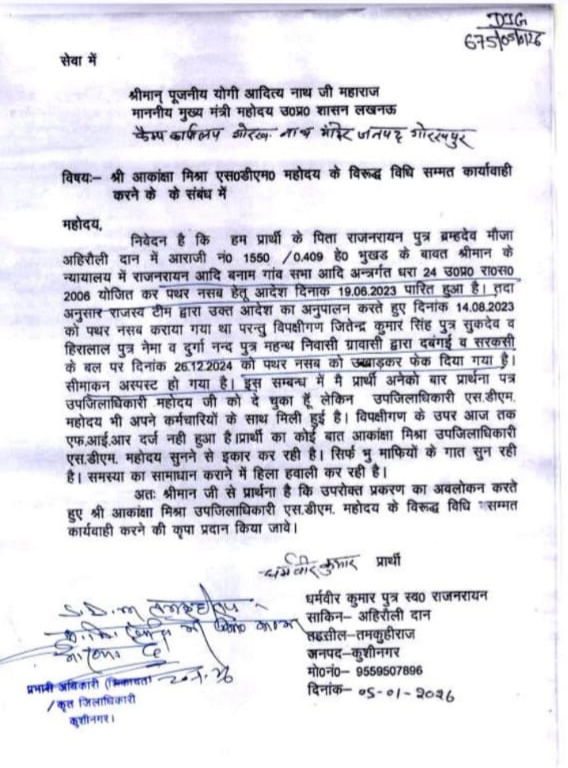 DIG
675/05/01/26
सेवा में
श्रीमान् पूजनीय योगी आदित्य नाथ जी महाराज
माननीय मुख्य मंत्री महोदय उ०प्र० शासन लखनऊ
कैम्प कार्यालय गोरख नाथ मंदिर जनपद गोरखपुर
विषयः– श्री आकांक्षा मिश्रा एस०डीएम० महोदय के विरूद्ध विधि सम्मत कार्यावाही
करने के के संबंध में
महोदय,
निवेदन है कि हम प्रार्थी के पिता राजनरायन पुत्र ब्रम्हदेव मौजा
अहिरौली दान में आराजी नं० 1550 /0.409 हे० भुखड के बावत श्रीमान के
न्यायालय में राजनरायन आदि बनाम गांव सभा आदि अन्तर्गत धरा 24 उ०प्र० रा०स०
2006 योजित कर पथर नसब हेतू आदेश दिनाक 19.06.2023 पारित हुआ है। तदा
अनुसार राजस्व टीम द्वारा उक्त आदेश का अनुपालन करते हुए दिनांक 14.08.2023
को पथर नसब कराया गया था परन्तु विपक्षीगण जितेन्द्र कुमार सिंह पुत्र सुकदेव व
हिरालाल पुत्र नेमा व दुर्गा नन्द पुत्र महन्थ निवासी ग्रावासी द्वारा दबंगई व सरकसी
के बल पर दिनांक 26.12.2024 को पथर नसब को उखाड़कर फेक दिया गया है।
सीमाकन अस्पस्ट हो गया है। इस सम्बन्ध में मै प्रार्थी अनेको बार प्रार्थना पत्र
उपजिलाधिकारी महोदय जी को दे चुका हूँ लेकिन उपजिलाधिकारी एस.डीएम.
महोदय भी अपने कर्मचारियों के साथ मिली हुई है। विपक्षीगण के उपर आज तक
एफ.आई.आर दर्ज नही हुआ है।प्रार्थी का कोई बात आकांक्षा मिश्रा उपजिलाधिकारी
एस.डीएम. महोदय सुनने से इकार कर रही है। सिर्फ भु माफियों के गात सुन रही
है। समस्या का सामाधान कराने में हिला हवाली कर रही है।
अतः श्रीमान जी से प्रार्थना है कि उपरोक्त प्रकरण का अवलोकन करते
हुए श्री आकांक्षा मिश्रा उपजिलाधिकारी एस.डीएम. महोदय के विरूद्ध विधि सम्मत
कार्यवाही करने की कृपा प्रदान किया जावे।
धर्मवीर कुमार प्रार्थी
धर्मवीर कुमार पुत्र स्व० राजनरायन
साकिन– अहिरौली दान
तहसील–तमकुहीराज
जनपद–कुशीनगर
मो०नं०– 9559507896
दिनांक– 05-01-2026
S.D.M तमकुहीराज
प्रभारी अधिकारी (शिकायत)
/कृत जिलाधिकारी
कुशीनगर।